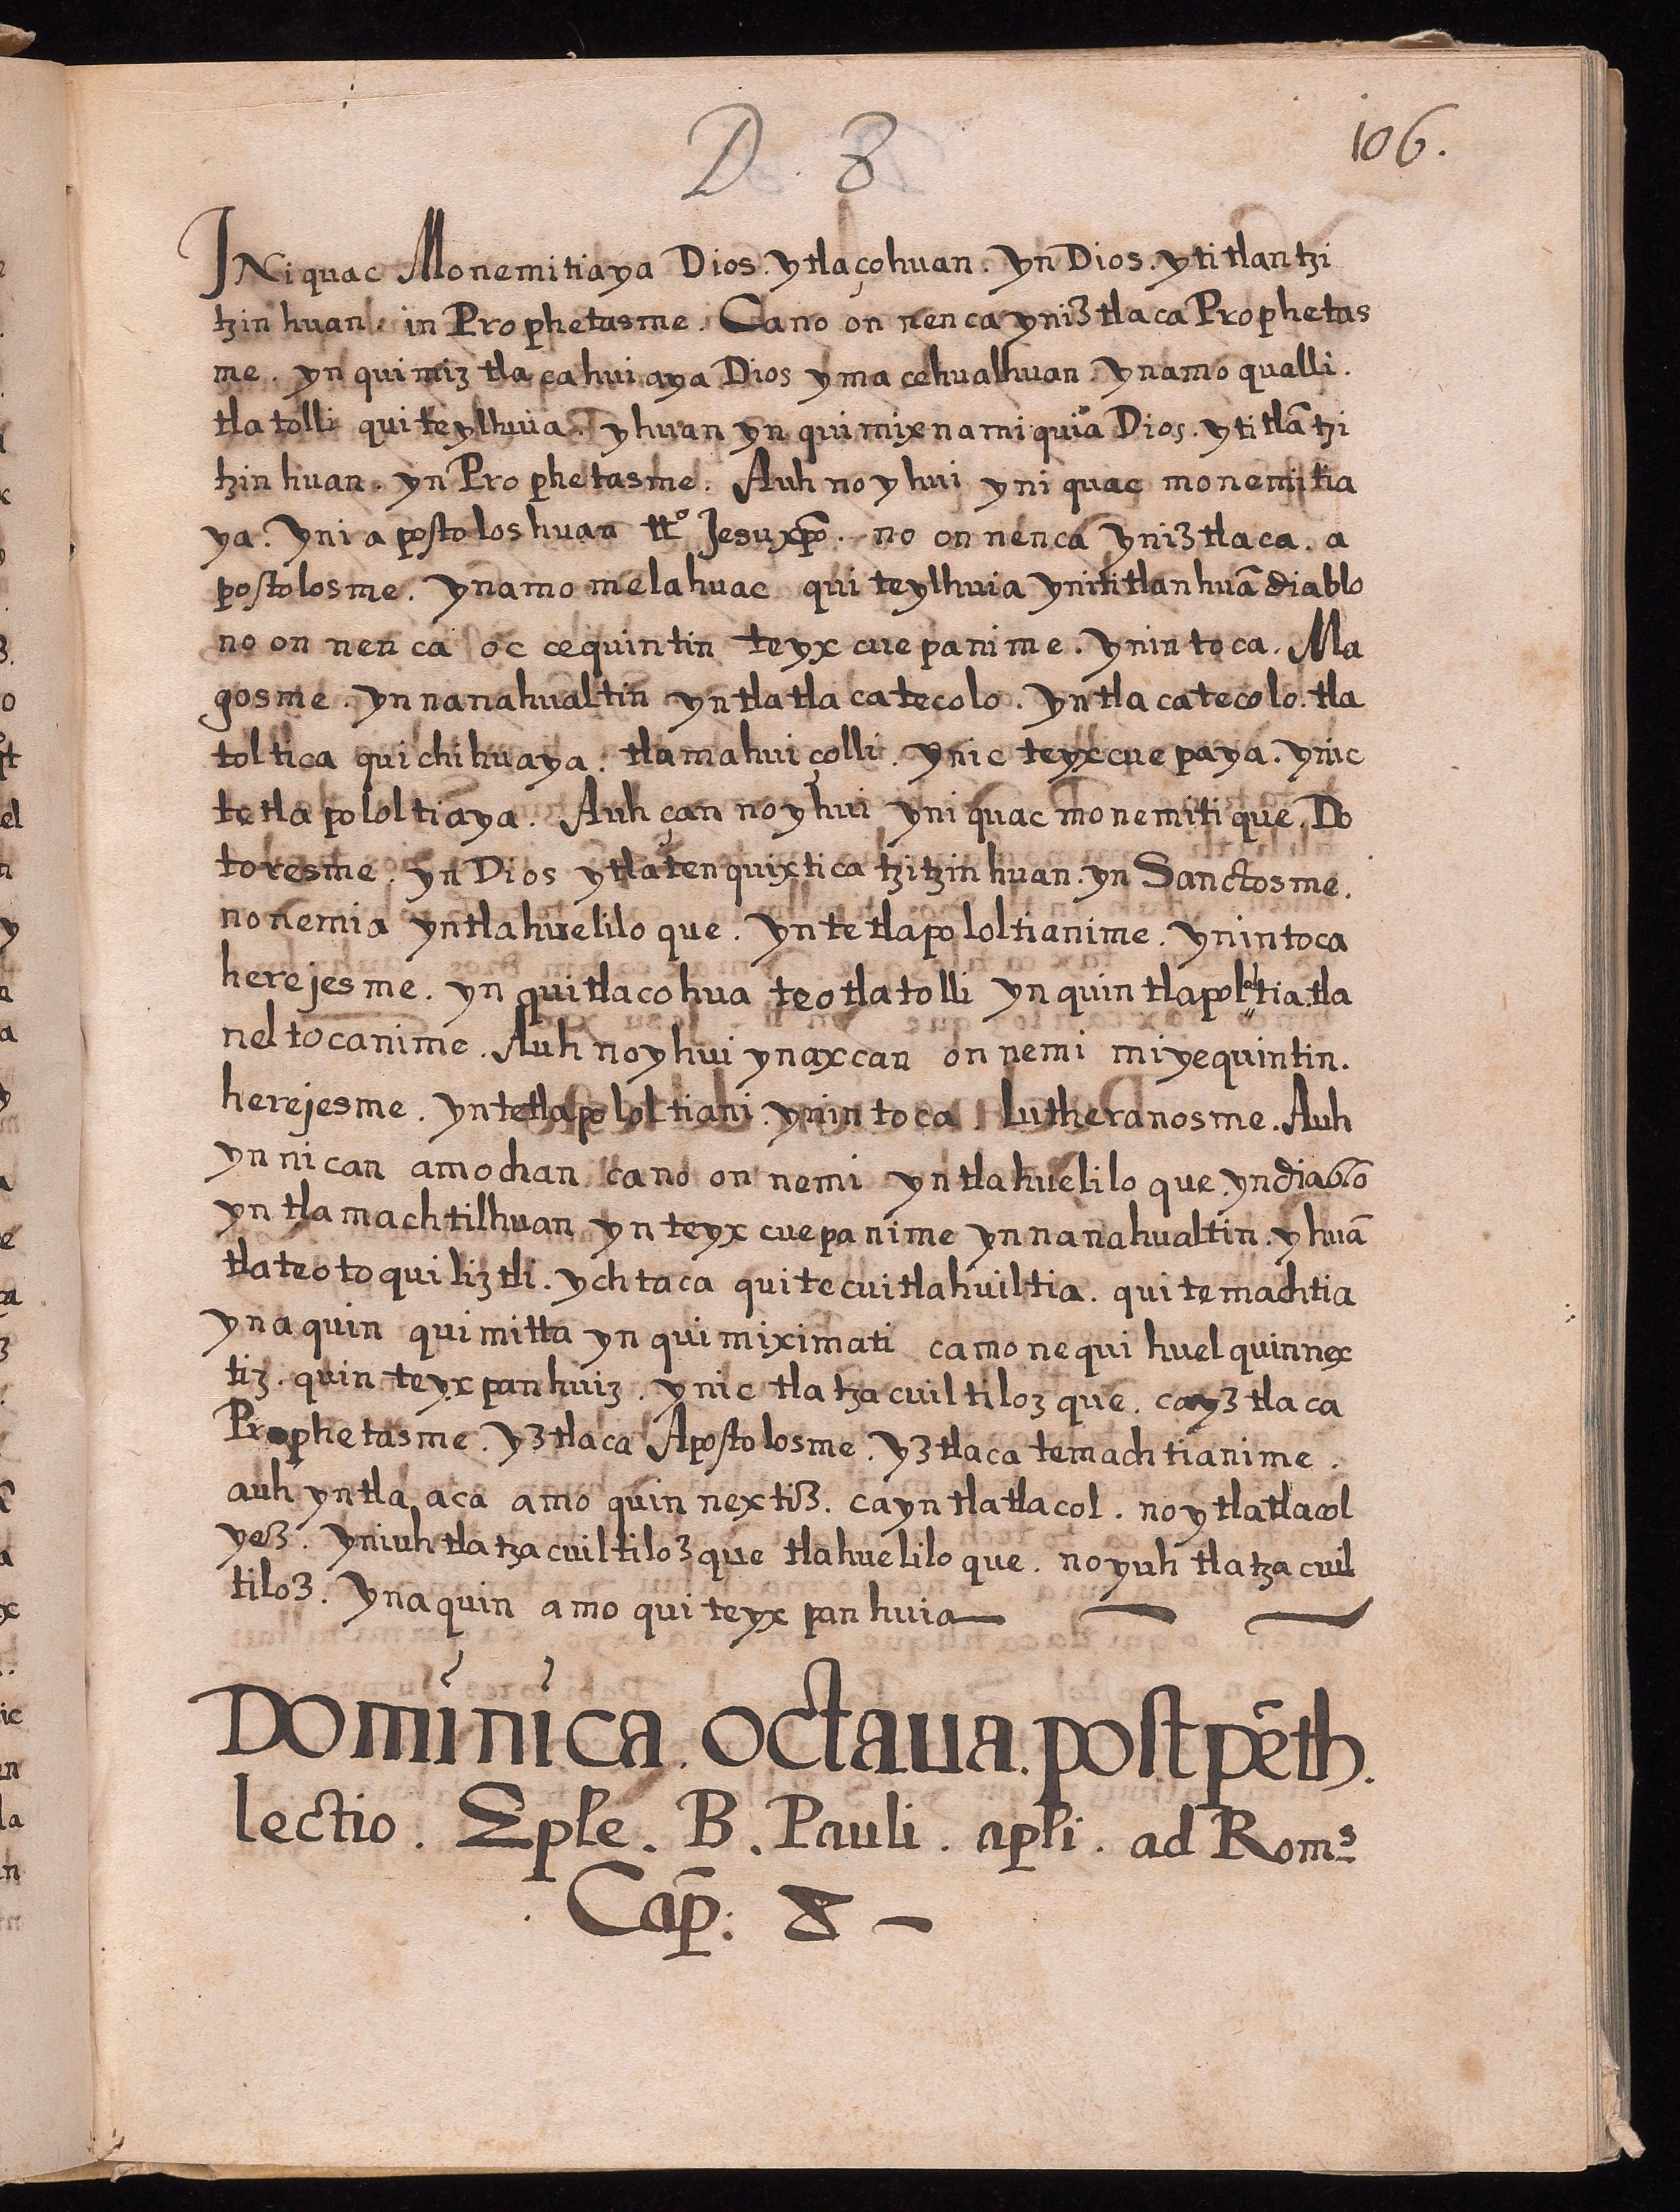 D. 8
106.
INi quac Monemitiaya Dios. ytlaçohuan. yn Dios. ytitlantzi
tzin huan. in Prophetasme. Cano on nenca yniz tlaca Prophetas
me. yn quimiz tlacahuiaya Dios ymacehualhuan. ynamo qualli.
tlatolli quiteylhuia. yhuan yn quimixnamiquia Dios. ytitlātzi
tzin huan. yn Prophetasme. Auh noyhui yni quac monemitia
ya. yni apostoloshuan ttº Jesuxpō. no onnenca yniz tlaca. a
postolosme. ynamo melahuac quiteylhuia ynititlanhuā diablo
no on nenca oc cequintin teyxcuepanime. ynintoca. Ma
gosme. yn nanahualtin yntlatlacatecolo. yntlacatecolo. tla
toltica quichihuaya. tlamahuiçolli. ynic teyxcuepaya. ynic
tetlapololtiaya. Auh çan noyhui yni quac monemitique. Do
toresme. yn Dios ytlatenquixticatzitzinhuan. yn Sanctosme.
nonemia yntlahuelilo que. yntetlapololtianime. ynintoca
herejesme. yn quitlacohua teotlatolli yn quintlapololtia. tla
neltocanime. Auh noyhui ynaxcan on nemi miyequintin.
herejesme. yntetlapololtiani. ynintoca. lutheranosme. Auh
yn nican amochan cano on nemi yntlahuelilo que. yn diablo
yn tlamachtilhuan yn teyxcuepanime yn nanahualtin. yhuā
tlateotoquiliztli. ychtaca quitecuitlahuiltia. quitemachtia
ynaquin quimitta yn quimiximati camonequi huel quinnex
tiz. quinteyxpanhuiz. ynic tlatzacuiltilozque. cayztlaca
Prophetasme. yztlaca Apostolosme. yztlaca temachtianime.
auh yntla aca amo quin nextiz. cayn tlatlacol. noytlatlacol
yez. yniuh tlatzacuiltilozque tlahuelilo que. noyuh tlatzacuil
tiloz. ynaquin amo quiteyxpanhuia
Dominica. octaua. post pēth.
lectio. Eple. B. Pauli. apli. ad Romˢ
Cap̄: 8